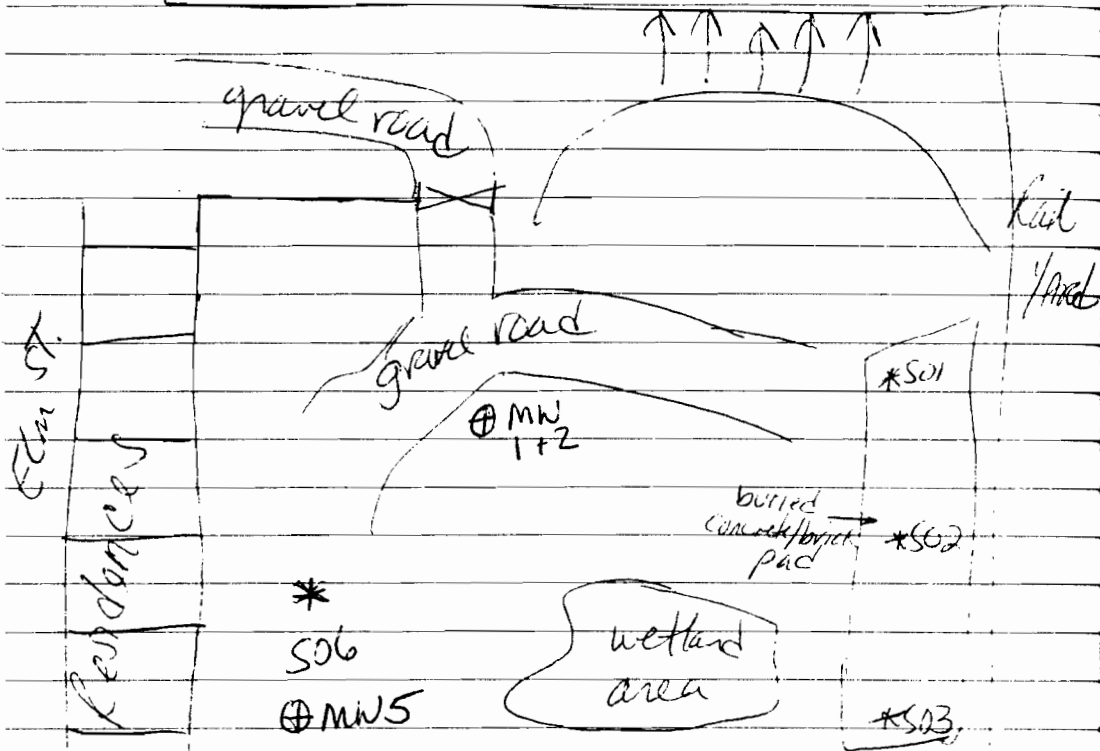 gravel road
Rail
Yard
gravel road
Elm St.
*S01
⊕ MW
1+2
Residences
buried
concrete/brick
pad
*S02
*
S06
wetland
area
⊕ MW5
*S03